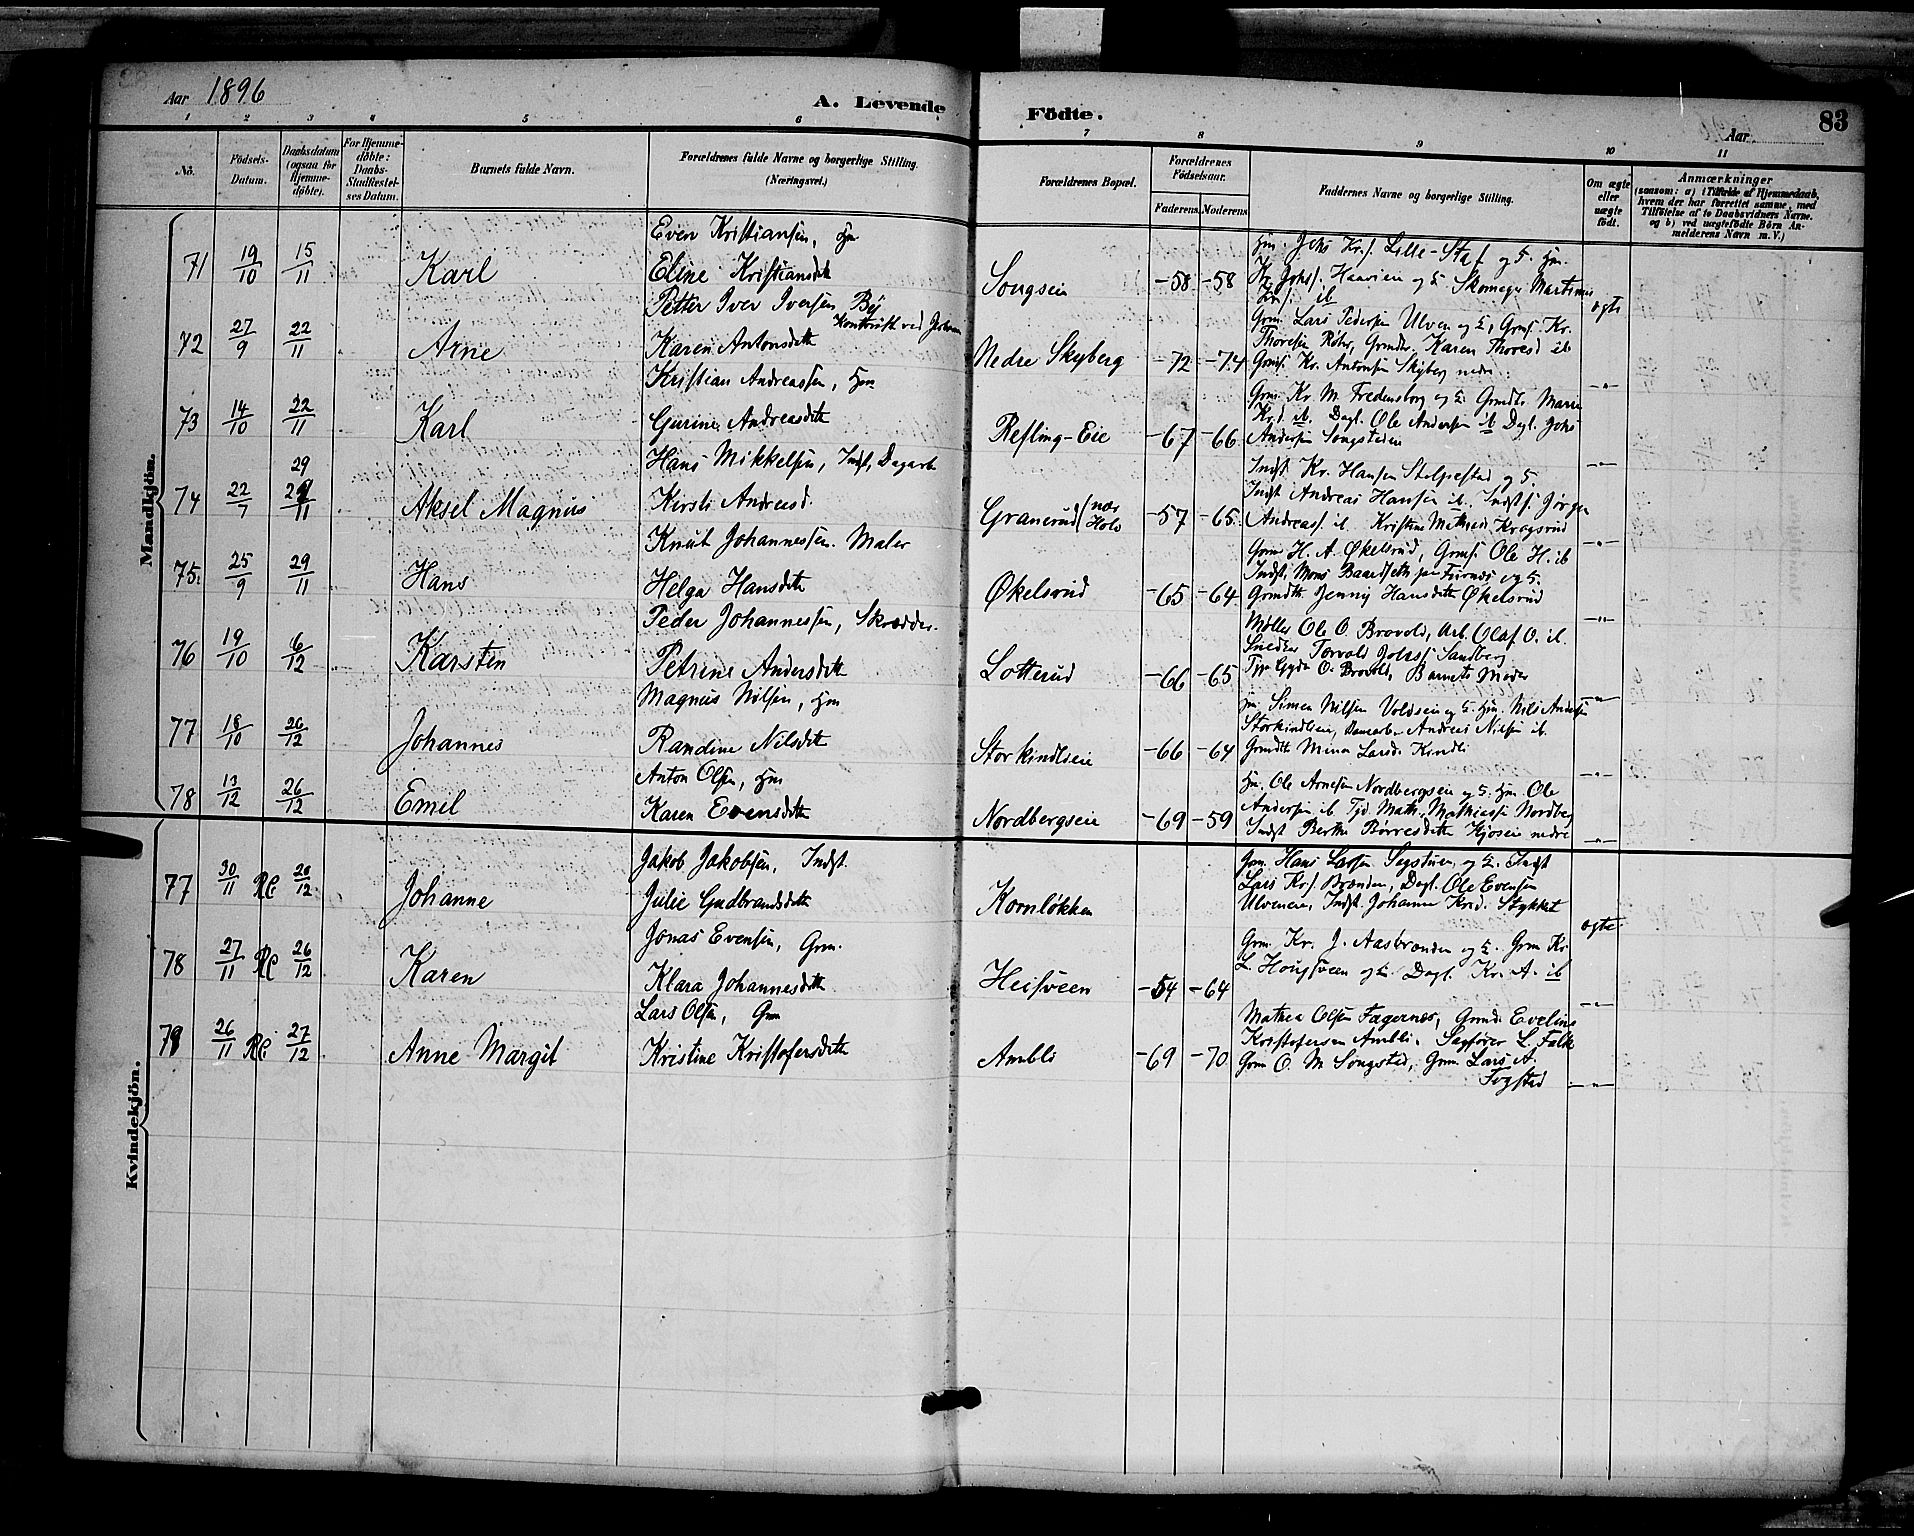 Aar 1896
A. Levende
Födte.
Aar
83
1 2 3 4 5 6 7 8 9 10 11
No.
Födsels-
Datum.
Daabsdatum
(ogsaa for
Hjemme-
döbte).
For Hjemme-
döbte:
Daabs-
Stadfæstel-
ses Datum.
Barnets fulde Navn.
Forældrenes fulde Navne og borgerlige Stilling.
(Næringsvei.)
Forældrenes Bopæl.
Forældrenes
Födselsaar.
Faderens
Moderens
Faddernes Navne og borgerlige Stilling.
Om ægte
eller
uægte
födt.
Anmærkninger
(saasom: a) i Tilfælde af Hjemmedaab,
hvem der har forrettet samme, med
Tilföielse af to Daabsvidners Navne.
og b) ved uægtefödte Börn An-
melderens Navn m. V.)
Mandkjön.
71 19/10 15/11 Karl
Even Kristiansen, Hm
Eline Kristiansdt
Songseie -58 -58
Hm. Johs Kr.s. Lille-Staf og H. Hm.
Kr. Johs. Haavien og H Skomager Martinus
ib
ægte
72 27/9 22/11 Arne
Petter Iver Iversen By
Karen Antonsdtt
Nedre Skyberg -72 -74
Grm. Lars Pedersen Ulven og H, Grms. Kr.
Thoresen Røhr, Grmdtr. Karen Thoresd ib
Grms. Kr. Antonsen Skyberg nedre
-"-
73 14/10 22/11 Karl
Kristian Andreassen, Hm
Gurine Andreasdtt
Refling-Eie -67 -66
Grm. Kr. M. Fredensborg og H. Grmdtr. Marie
Kr.d ib. Dagl. Ole Andersen ib Dagl. Johs
Andersen Songsteden
-"-
74 22/7 29 29/11 Aksel Magnus
Hans Mikkelsen, Indst, Dagarb.
Kirsti Andreasd.
Granerud (nær Holo -57 -65
Indst. Kr. Hansen Stelpestad og H.
Indst Andreas Hansen ib. Indst s. Jørgen
Andreass. ib. Kristine Mathiasd Kragsrud
-"-
75. 25/9 29/11 Hans
Knut Johannessen. Maler
Helga Hansdtt
Økelsrud -65 -64
Grm H. A. Økelsrud, Grms. Ole H. ib
Indst. Mons Baardseth paa Furnes og H.
Grmdtt Jenny Hansdtt Økelsrud
-"-
76 19/10 6/12 Karsten
Peder Johannessen, Skrædder.
Petrine Andersdtt
Lotterud -66 -65
Møller Ole O. Brovold, Arb. Olaf O. ib.
Snedker Torvald Johss Sandberg
Gyda O. Brovold, Barnets Moder
-"-
77 18/10 26/12 Johannes
Magnus Nilsen, Hm
Randine Nilsdtt
Storkindlieie -66 -64
Hm. Simen Nilsen Voldseie og H. Hm. Nils Andersen
Storkindlieie, Andreas Nilsen ib.
Grmdtt Mina Larsd. Kindli
-"-
78 13/12 26/12 Emel
Anton Olsen, Hm
Karen Evensdtt
Nordbergseie -69 -59
Hm. Ole Arnesen Nordbergseie og H. Hm. Ole
Andersen ib Tjd Math. Mathiasen Nordberg
Indst Berthe Børresdatt Kjoseie nedre
-"-
Kvindekjön.
77 30/11 Re 20/12 Johanne
Jakob Jakobsen, Indst.
Julie Gudbrandsdtt
Kornløkken
Grm. Hans Larsen Segstuen og H. Indst
Lars Kr.s. Brænden, Dagl. Ole Evensen
Ulveneie, Indst. Johanne Knd. Stykket
ægte
78 27/11 Re 26/12 Karen
Jonas Evensen, Grm.
Klara Johannesdtt
Heisveen -54 -64
Grm. Kr. J. Aasbrænden og H. Grm Kr.
L. Hougsveen og H. Dagl. Kr. A. ib
-"-
79 26/11 Re 27/12 Anne Margit
Lars Olsen, Grm
Kristine Kristofersdtt
Ambli -69 -70
Mathea Olsen Fagernes, Grmd. Eveline
Kristofersen Ambli. Sagfører L. Falk
Grm O. M Songsted, Grm. Lars A.
Togstad
-"-